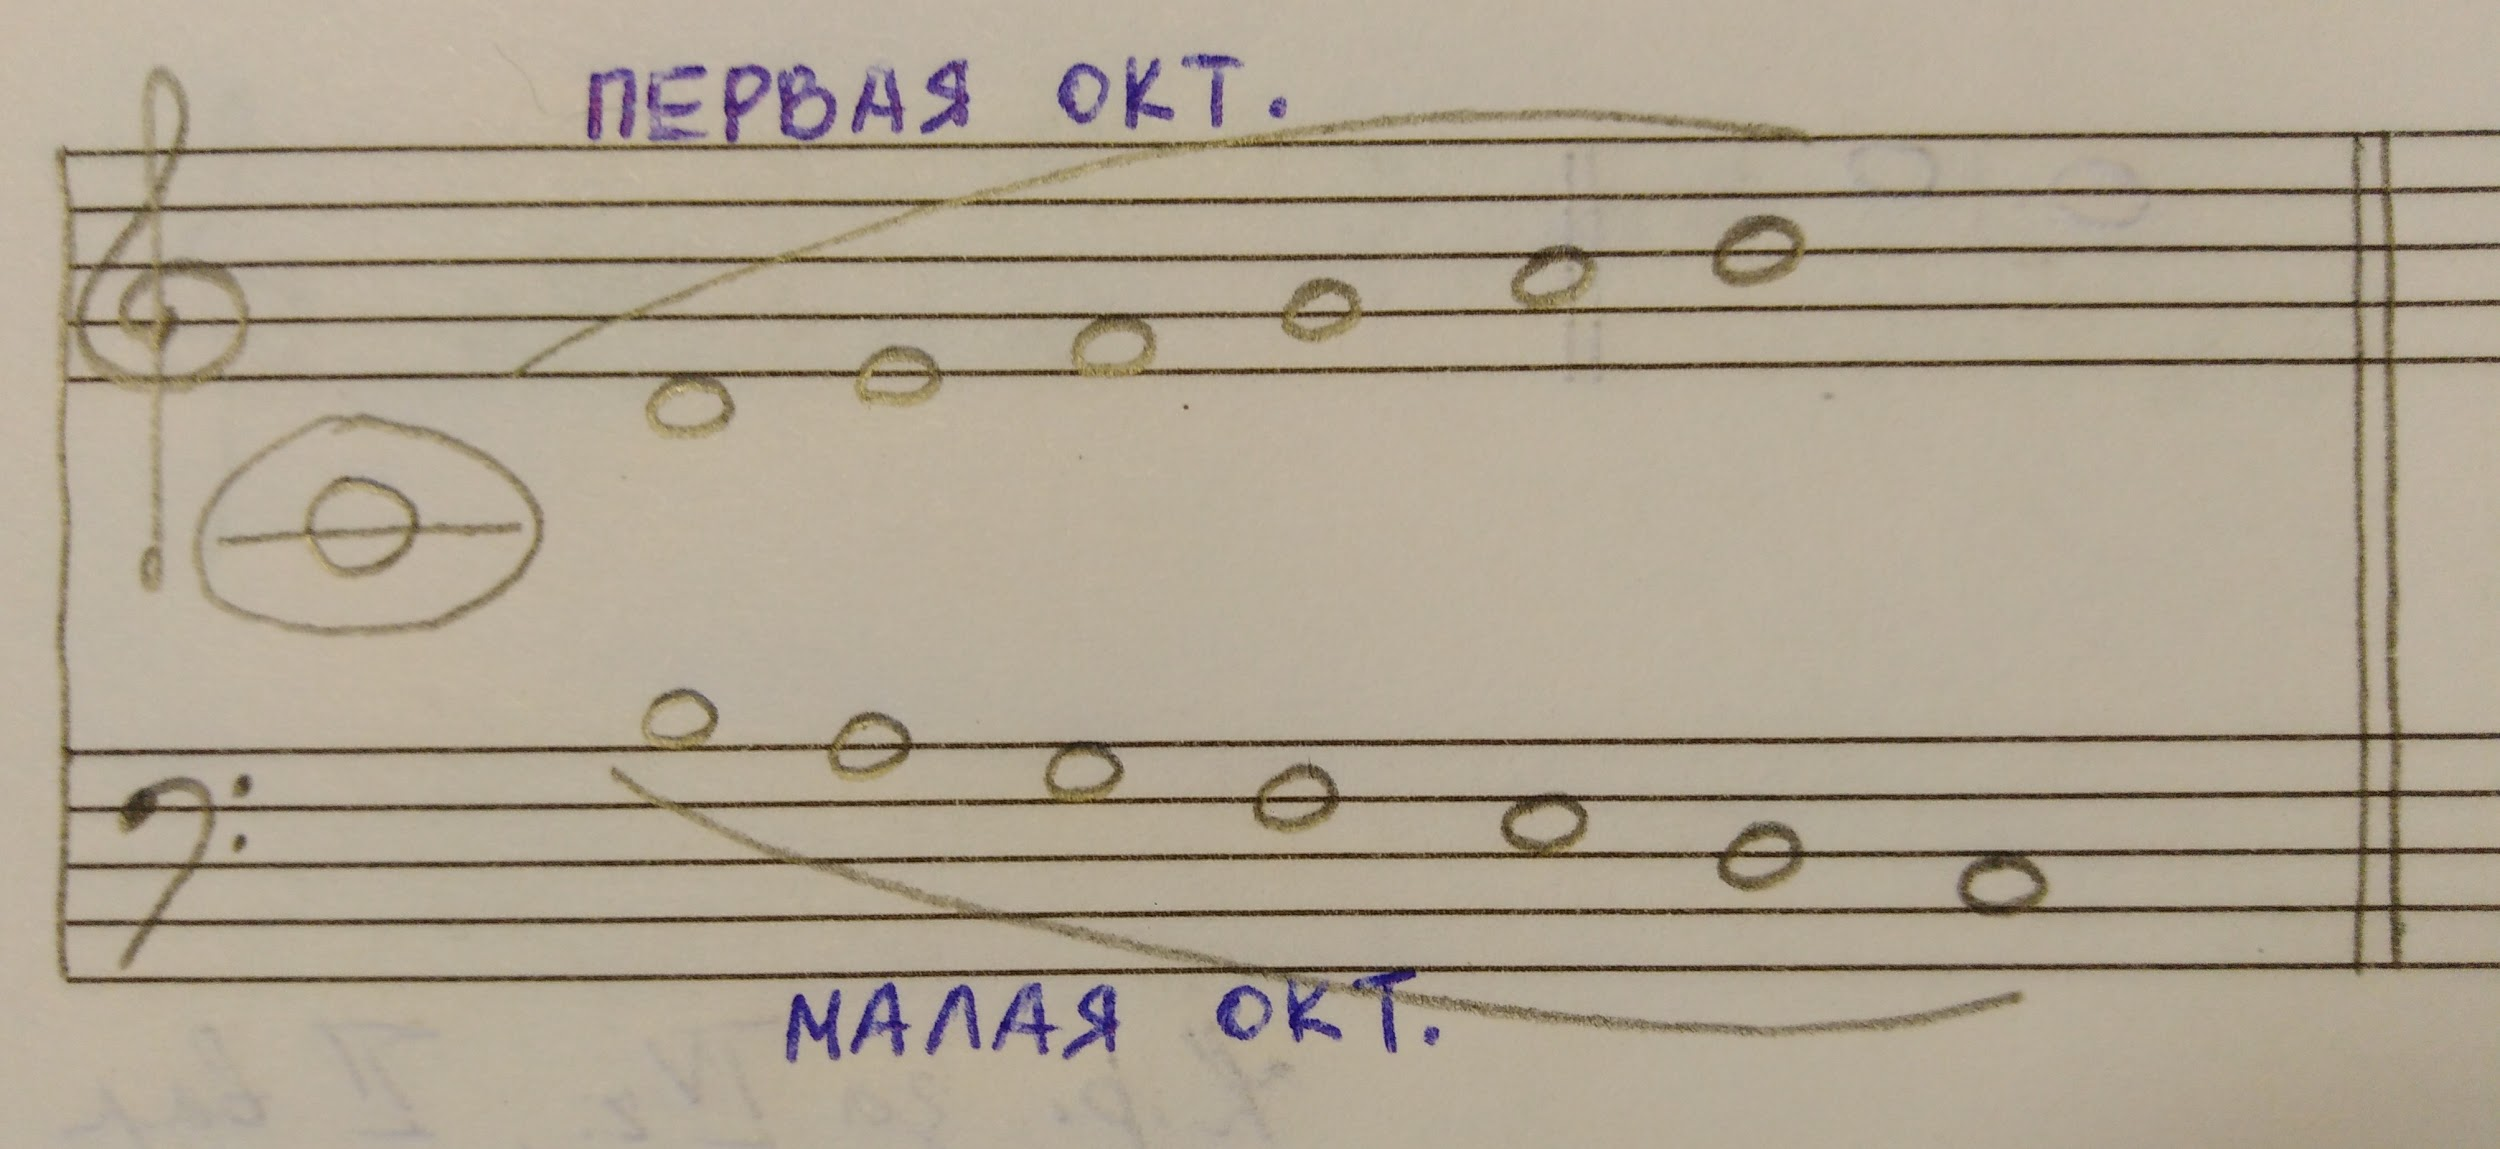 ПЕРВАЯ ОКТ.
МАЛАЯ ОКТ.